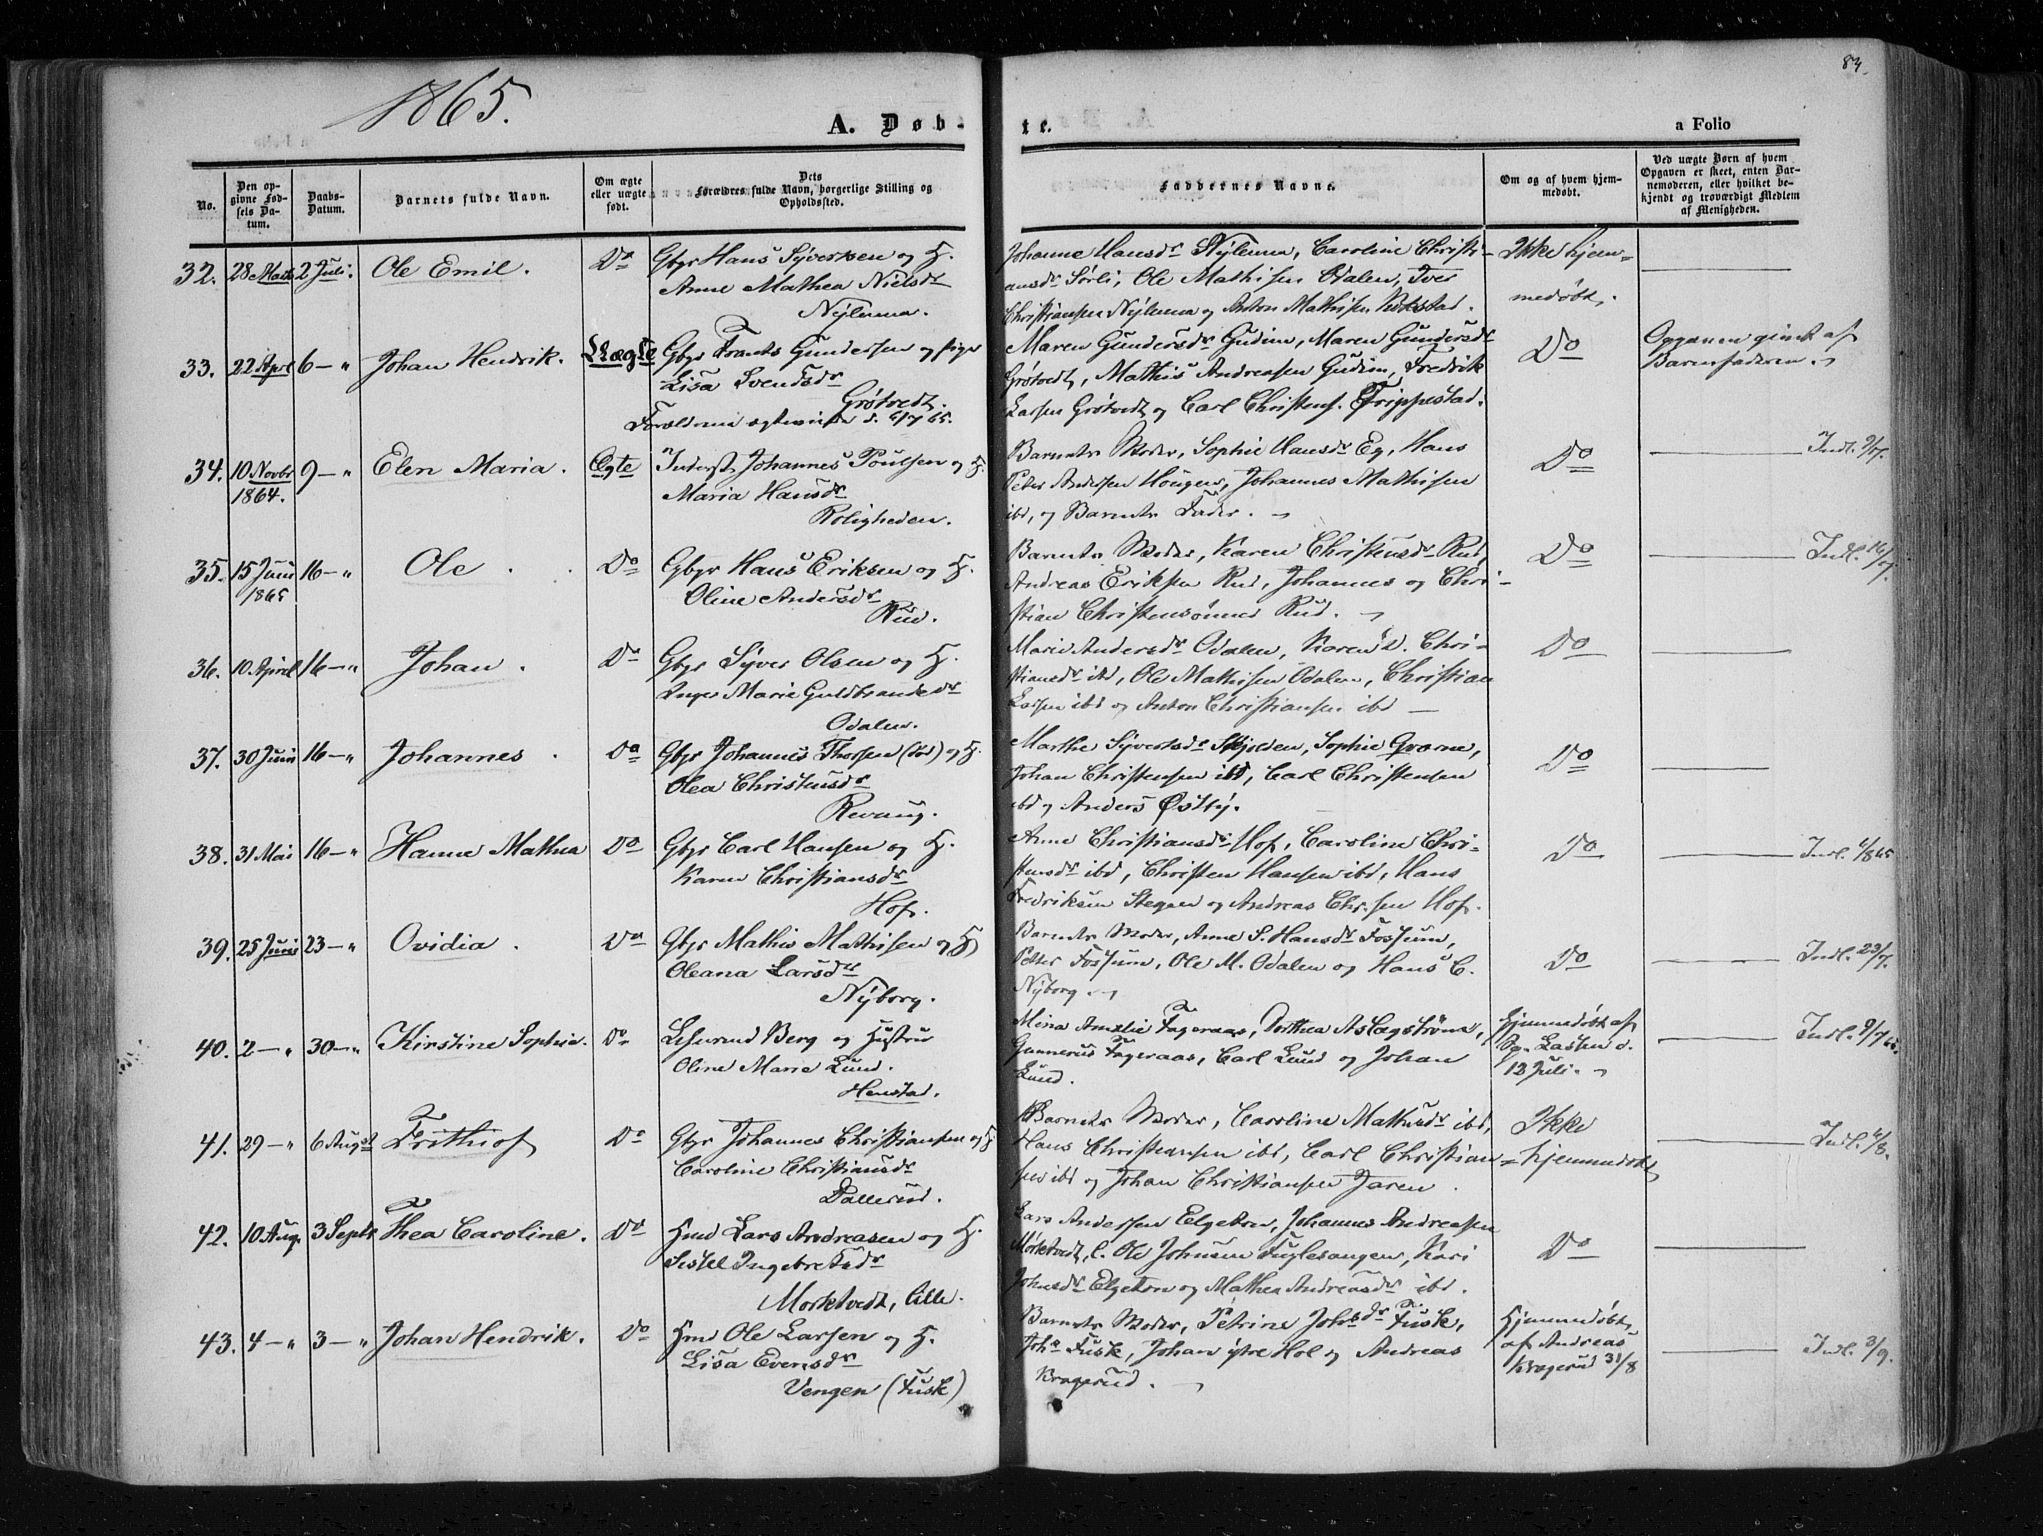 1865.
83.
A. Døb-
te.
a Folio
No.
Den op-
givne Fød-
sels Da-
tum.
Daabs-
Datum.
Barnets fulde Navn.
Om ægte
eller uægte
født.
Dets
Forældres fulde Navn, borgerlige Stilling og
Opholdssted.
Faddernes Navne.
Om og af hvem hjem-
medøbt.
Ved uægte Børn af hvem
Opgaven er skeet, enten Bar-
nemoderen, eller hvilket be-
kjendt og troværdigt Medlem
af Menigheden.
32. 28 Marts 2 Juli. Ole Emil. Do Gbr Hans Syversen og H.
Anne Mathea Nielsdr
Nylenna.
Johanne Hansdr Nylenna, Caroline Christi-
ansdr Sørli, Ole Mathisen Odalen, Iver
Christiansen Nylenna og Anton Mathisen
Ikke hjem-
medøbt.
33. 22 April 6 - " Johan Hendrik. Uægte Gbr Frants Gundersen og Pige
Lisa Svendsdr
Grøtvedt.
Forældrene d. 6/7 65.
Maren Gundersdr Gudim, Maren Gundersdr
Grøtvedt, Mathis Andreasen Gudim, Fredrik
Larsen Grøtvedt og Carl Christens. Trippestad.
Do
Opgaven gjort af
Barnefaderen.
34. 10 Novbr 9 - " Elen Maria. Ægte Inderst Johannes Poulsen og H.
1864.
Maria Hansdr
Roligheden.
Barnets Moder, Sophie Hansdr Eg, Hans
Peter Andersen Hougen, Johannes Mathisen
ibd, og Barnets Fader.
Do
Indl. 9/7.
35. 15 Juni 16 - " Ole. Do Gbr Hans Eriksen og H.
1865
Oline Andersdr
Rud.
Barnets Moder, Karen Christensdr Rud,
Andreas Eriksen Rud, Johannes og Chri-
stian Christensønner Rud.
Do
Indl. 16/7.
36. 10 April 16 - " Johan. Do Gbr Syver Olsen og H.
Inger Marie Guldbrandsdr
Odalen.
Marie Andersdr Odalen, Karen D. Chri-
stiansdr ibd, Ole Mathisen Odalen, Christian
Larsen ibd og Anton Christiansen ibd
Do
37. 30 Juni 16 - " Johannes. Do Gbr Johannes Thorsen (død) og H.
Olea Christensdr
Revaug.
Marthe Syvertsdr Skjolden, Sophie Qværne,
Johan Christensen ibd, Carl Christensen
ibd og Anders Østby.
Do
38. 31 Mai 16 - " Hanne Mathea Do Gbr Carl Hansen og H.
Karen Christiansdr
Hof.
Anne Christiansdr Hof, Caroline Chri-
stensdr ibd, Christen Hansen ibd, Hans
Fredriksen Stegen og Andreas Chr.sen Hof.
Do
Indl. 6/8 65
39. 25 Juni 23 - " Ovidia. Do Gbr Mathis Mathisen og H.
Oleana Larsdr
Nyborg.
Barnets Moder, Anne S. Hansdr Fossum,
Petter Fossum, Ole M. Odalen og Hans C.
Nyborg.
Do
Indl. 23/7.
40. 2 - " 30 - " Kirstine Sophie. Do Berg og Hustru
Oline Marie Lund.
Henstad.
Mina Amalie Fageraas, Dorthea Aslagstrøm,
Gunnerus Fageraas, Carl Lund og Johan
Lund.
Hjemmedøbt af
Lassen d.
12 Juli.
Indl. 9/7 65.
41. 29 - " 6 August Frithiof Do Gbr Johannes Christiansen og H.
Caroline Christiansdr
Dallerud.
Barnets Moder, Caroline Mathisdr ibd,
Hans Christiansen ibd, Carl Christian-
sen ibd og Johan Christiansen Jaren.
Ikke
hjemmedøbt
Indl. 6/8.
42. 10 Aug. 3 Septr Thea Caroline. Do Hmd Lars Andreasen og H.
Sissel Ingebretsdr
Morktvedt, lille.
Lars Andersen Elgetun, Johannes Andreasen
Mørktvedt, l. Ole Johnsen Fuglesangen, Kari
Johnsdr Elgetun og Mathea Andreasdr ibd.
Do
43. 4 - " 3 - " Johan Hendrik. Do Hmd Ole Larsen og H.
Lisa Evensdr
Vengen (Fusk)
Barnets Moder, Petrine Johsdr Fusk,
Johs Fusk, Johan østre Hol og Andreas
Kragerud.
Hjemmedøbt
af Andreas
Kragerud 31/8
Indl. 3/9.